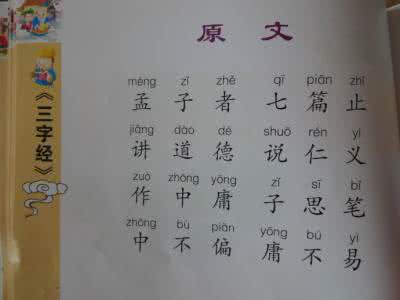 原文
《三字经》
mèng zǐ zhě qī piān zhǐ
孟子者 七篇止
jiǎng dào dé shuō rén yì
讲道德 说仁义
zuò zhōng yōng zǐ sī bǐ
作中庸 子思笔
zhōng bù piān yōng bú yì
中不偏 庸不易